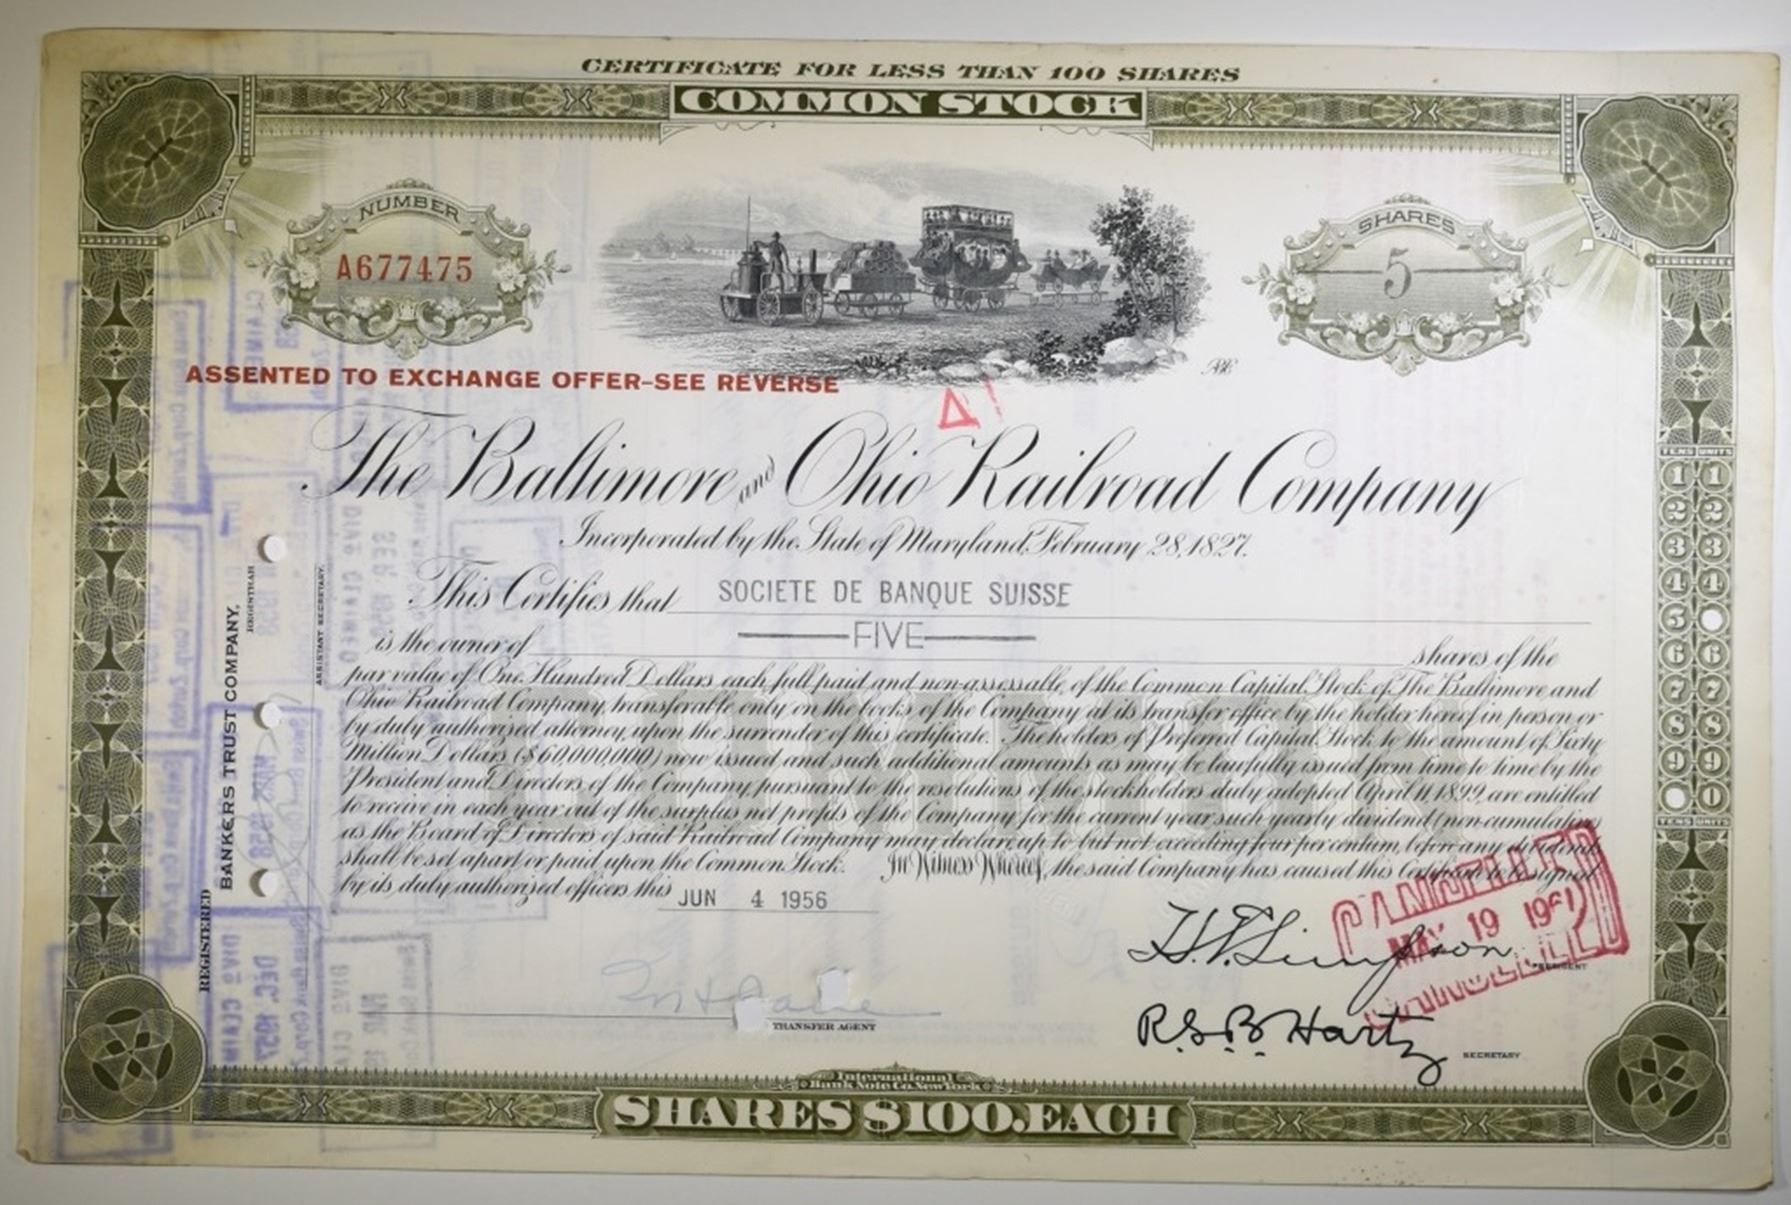 CERTIFICATE FOR LESS THAN 100 SHARES
COMMON STOCK
NUMBER
A677475
SHARES
5
ASSENTED TO EXCHANGE OFFER-SEE REVERSE
The Baltimore and Ohio Railroad Company
Incorporated by the State of Maryland, February 28, 1827.
This Certifies that SOCIETE DE BANQUE SUISSE
is the owner of FIVE shares of the
par value of One Hundred Dollars each full paid and non-assessable, of the Common Capital Stock of The Baltimore and
Ohio Railroad Company, transferable only on the books of the Company at its transfer office by the holder hereof in person or
by duly authorized attorney, upon the surrender of this certificate. The holders of Preferred Capital Stock to the amount of Sixty
Million Dollars ($60,000,000) now issued and such additional amounts as may be lawfully issued from time to time by the
President and Directors of the Company, pursuant to the resolutions of the stockholders duly adopted April 11, 1899, are entitled
to receive in each year out of the surplus net profits of the Company for the current year such yearly dividend (non-cumulative)
as the Board of Directors of said Railroad Company may declare, up to but not exceeding four per centum, before any dividends
shall be set apart or paid upon the Common Stock. In Witness Whereof, the said Company has caused this Certificate to be signed
by its duly authorized officers this JUN 4 1956
CANCELLED
MAY 19 1961
CANCELLED
H. E. Simpson
PRESIDENT
TRANSFER AGENT
R.G.B. Hartz
SECRETARY
REGISTERED
BANKERS TRUST COMPANY,
REGISTRAR
ASSISTANT SECRETARY.
TENS UNITS
1 1
2 2
3 3
4 4
5
6 6
7 7
8 8
9 9
0
TENS UNITS
International
Bank Note Co. New York
SHARES $100. EACH